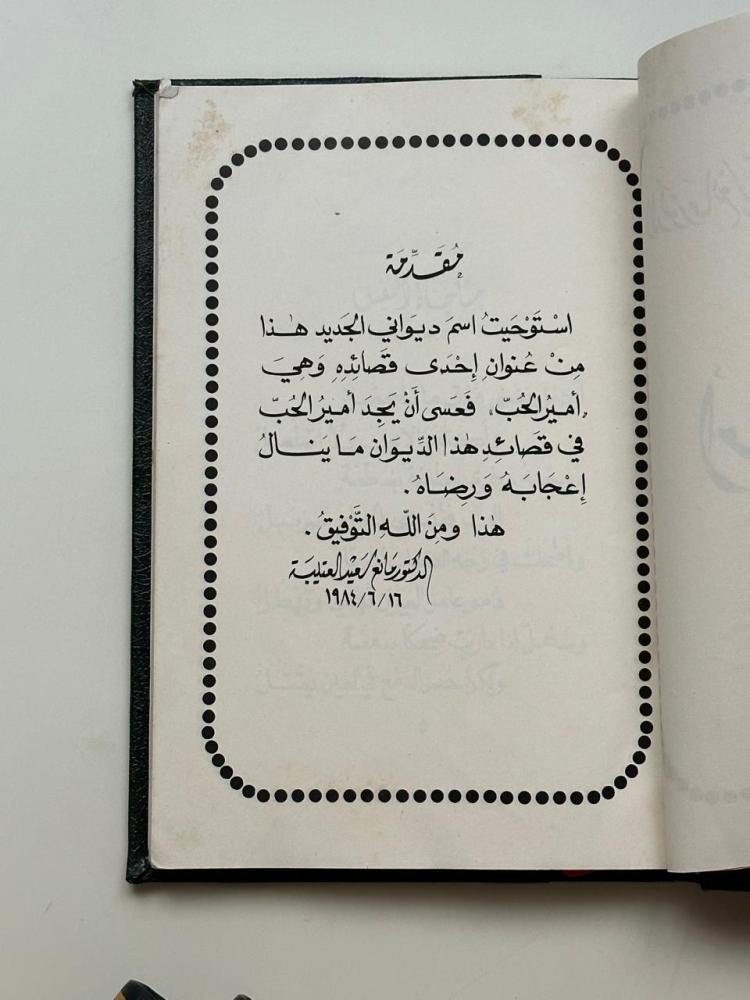 مُقَدِّمَة
اسْتَوْحَيْتُ اسْمَ ديوَاني الجَديد هٰذا
مِنْ عُنوانِ إِحْدَى قصَائِدِهِ وَهِيَ
أميرُ الحُبّ، فَعَسَى أنْ يَجِدَ أميرُ الحُبّ
في قصَائدِ هٰذا الدِّيوَان مَا يَنالُ
إِعْجَابَهُ وَرِضَاهُ.
هٰذا ومِنَ اللّهِ التَّوْفيقُ.
الدكتور مانع سعيد العتيبة
١٩٨٤/٦/١٦